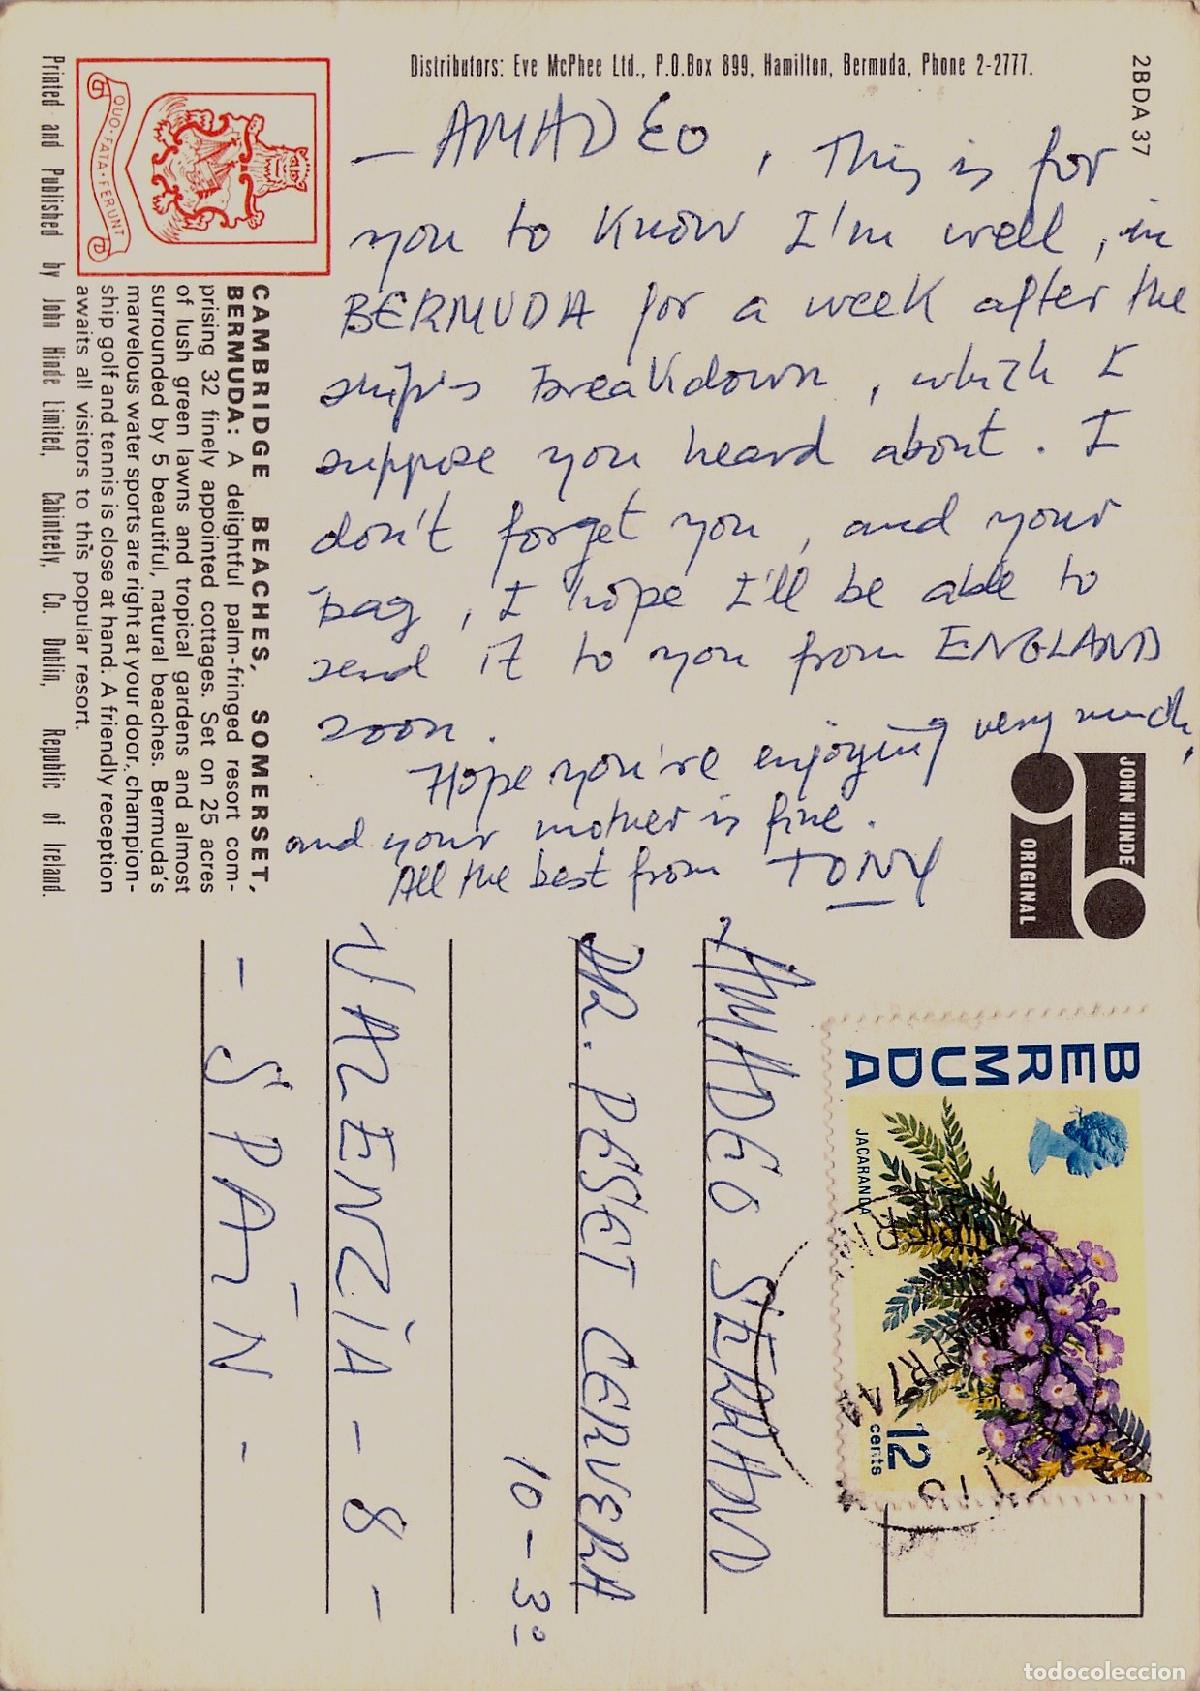 Distributors: Eve McPhee Ltd., P.O.Box 899, Hamilton, Bermuda, Phone 2-2777.
2BDA 37
— AMADEO , This is for
you to know I'm well, in
BERMUDA for a week after the
ship's breakdown, which I
suppose you heard about. I
don't forget you, and your
bag, I hope I'll be able to
send it to you from ENGLAND
soon.
Hope you're enjoying very much,
and your mother is fine.
All the best from TONY
QUO FATA FERUNT
CAMBRIDGE BEACHES, SOMERSET,
BERMUDA: A delightful palm-fringed resort com-
prising 32 finely appointed cottages. Set on 25 acres
of lush green lawns and tropical gardens and almost
surrounded by 5 beautiful, natural beaches. Bermuda's
marvelous water sports are right at your door, champion-
ship golf and tennis is close at hand. A friendly reception
awaits all visitors to this popular resort.
Printed and Published by John Hinde Limited, Cabinteely, Co. Dublin, Republic of Ireland.
JOHN HINDE
ORIGINAL
BERMUDA
JACARANDA
12
cents
AMADEO SERRANO
DR. PESET CERVERA
10-3º
VALENCIA - 8 -
- SPAIN -
todocoleccion